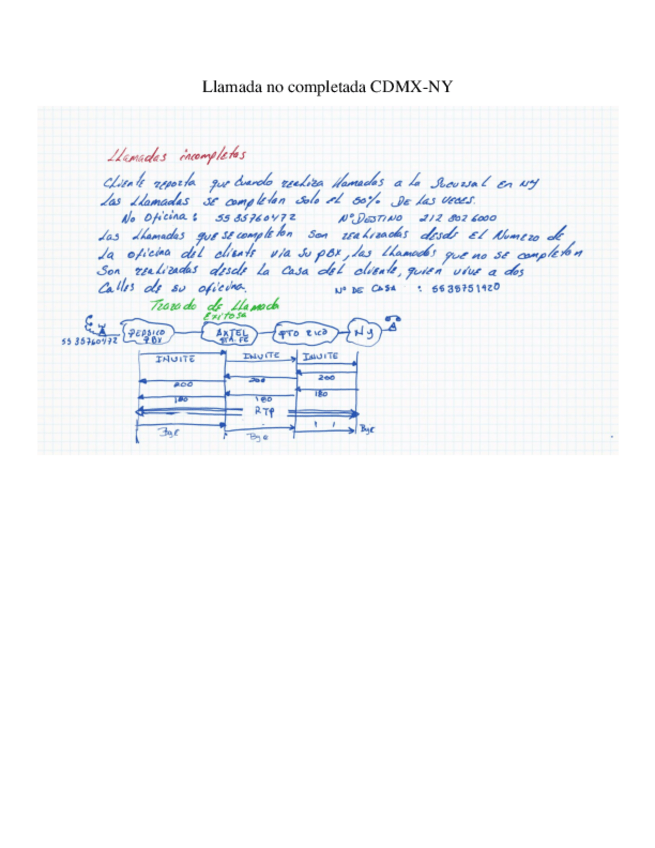 Llamada no completada CDMX-NY
Llamadas incompletas
Cliente reporta que cuando realiza llamadas a la Sucursal en NY
Las Llamadas se completan solo el 50% De Las veces.
No Oficina : 5535760472 N° Destino 212 802 6000
Las Llamadas que se completan Son realizadas desde El Numero de
La oficina del cliente via su PBX, Las Llamadas que no se completan
Son realizadas desde La Casa del cliente, quien vive a dos
Calles de su oficina. N° DE CASA : 5535751920
Trazado de Llamada
Exitosa
5535760472 PBX AXTEL PTO RICO NY
INVITE INVITE INVITE
200 200 200
180 180 180
RTP
Bye Bye Bye